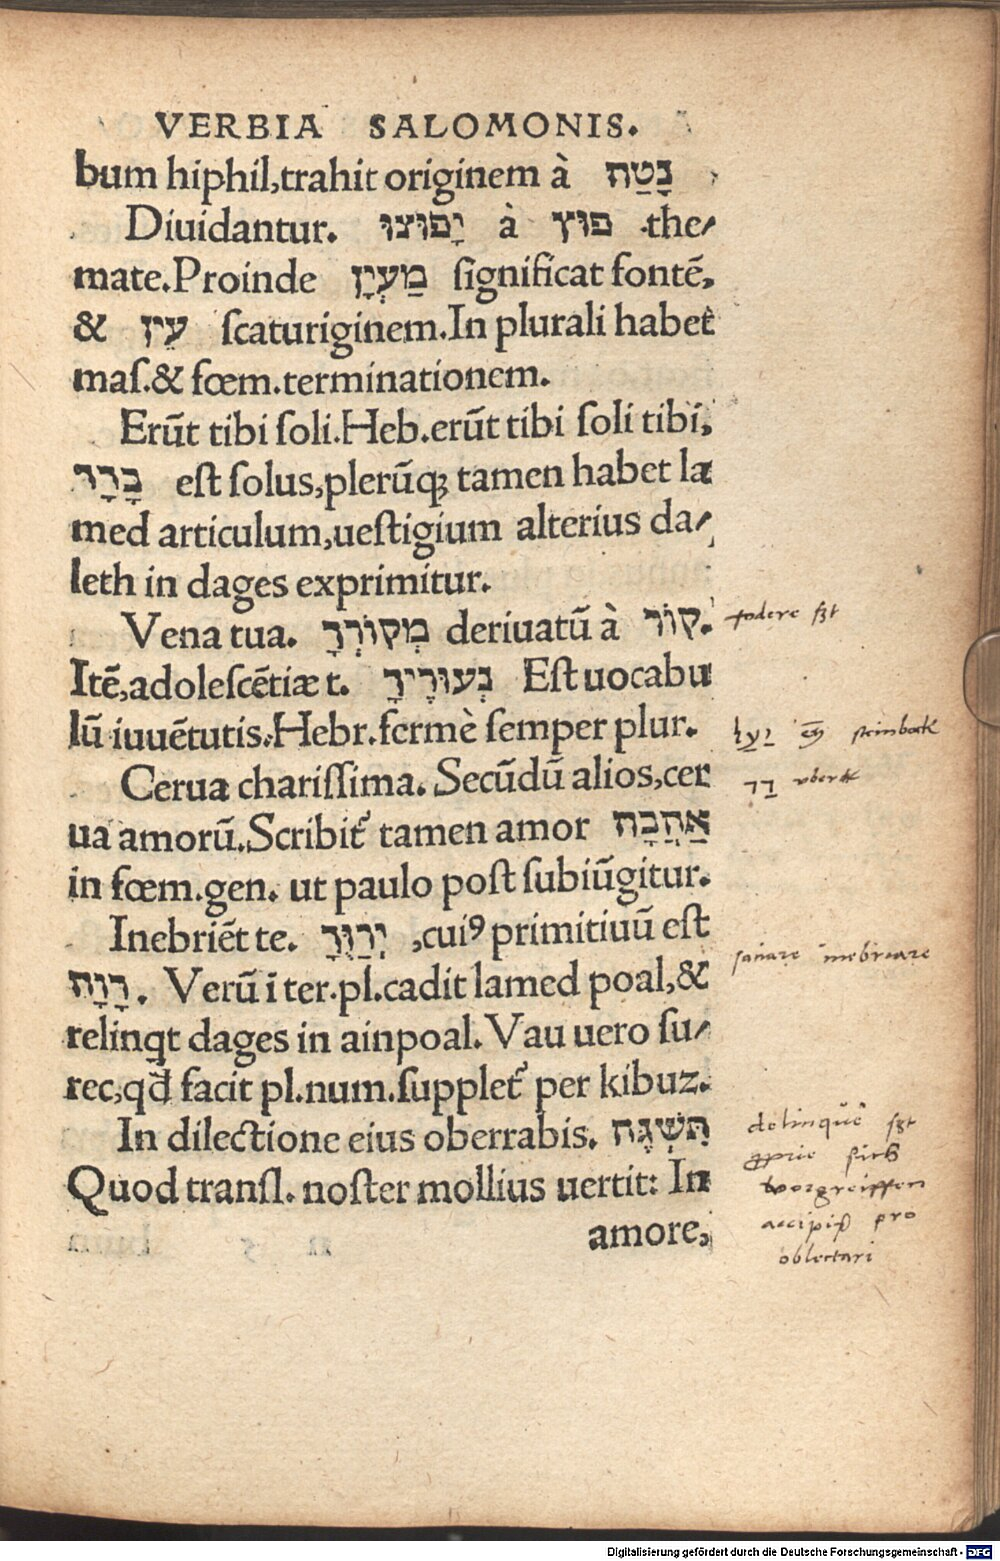 VERBIA SALOMONIS.
bum hiphil,trahit originem à נָטַח
Diuidantur. יָפוּצוּ à פוּץ the⸗
mate.Proinde מַעְיָן ſignificat fontē,
& עַין ſcaturiginem.In plurali habet
maſ.& fœm.terminationem.
Erūt tibi ſoli.Heb.erūt tibi ſoli tibi,
בָּדָד eſt ſolus,plerūq; tamen habet la
med articulum,ueſtigium alterius da⸗
leth in dages exprimitur.
Vena tua. מְקוֹרְךָ deriuatū à קוֹר.
fodere
Itē,adoleſcētiæ t. נְעוּרֶיךָ Eſt uocabu
lū iuuētutis.Hebr.fermè ſemper plur.
יעל steinbock
Cerua chariſſima. Secūdū alios,cer
דד
ua amorū.Scribit᷑ tamen amor אַהֲבָה
in fœm.gen. ut paulo poſt ſubiūgitur.
Inebriēt te. יְרַוֻּךָ ,cuiꝰ primitiuū eſt
inebreare
רָוָה. Verū ī ter.pl.cadit lamed poal,&
relinq̃t dages in ainpoal. Vau uero ſu⸗
rec,qđ facit pl.num.ſupplet᷑ per kibuz.
In dilectione eius oberrabis. תִּשְׁגֶּה
Quod tranſl. noſter mollius uertit: In
amore,
delinquē
sich
vorgreiffen
pro
oblectari
Digitalisierung gefördert durch die Deutsche Forschungsgemeinschaft - DFG